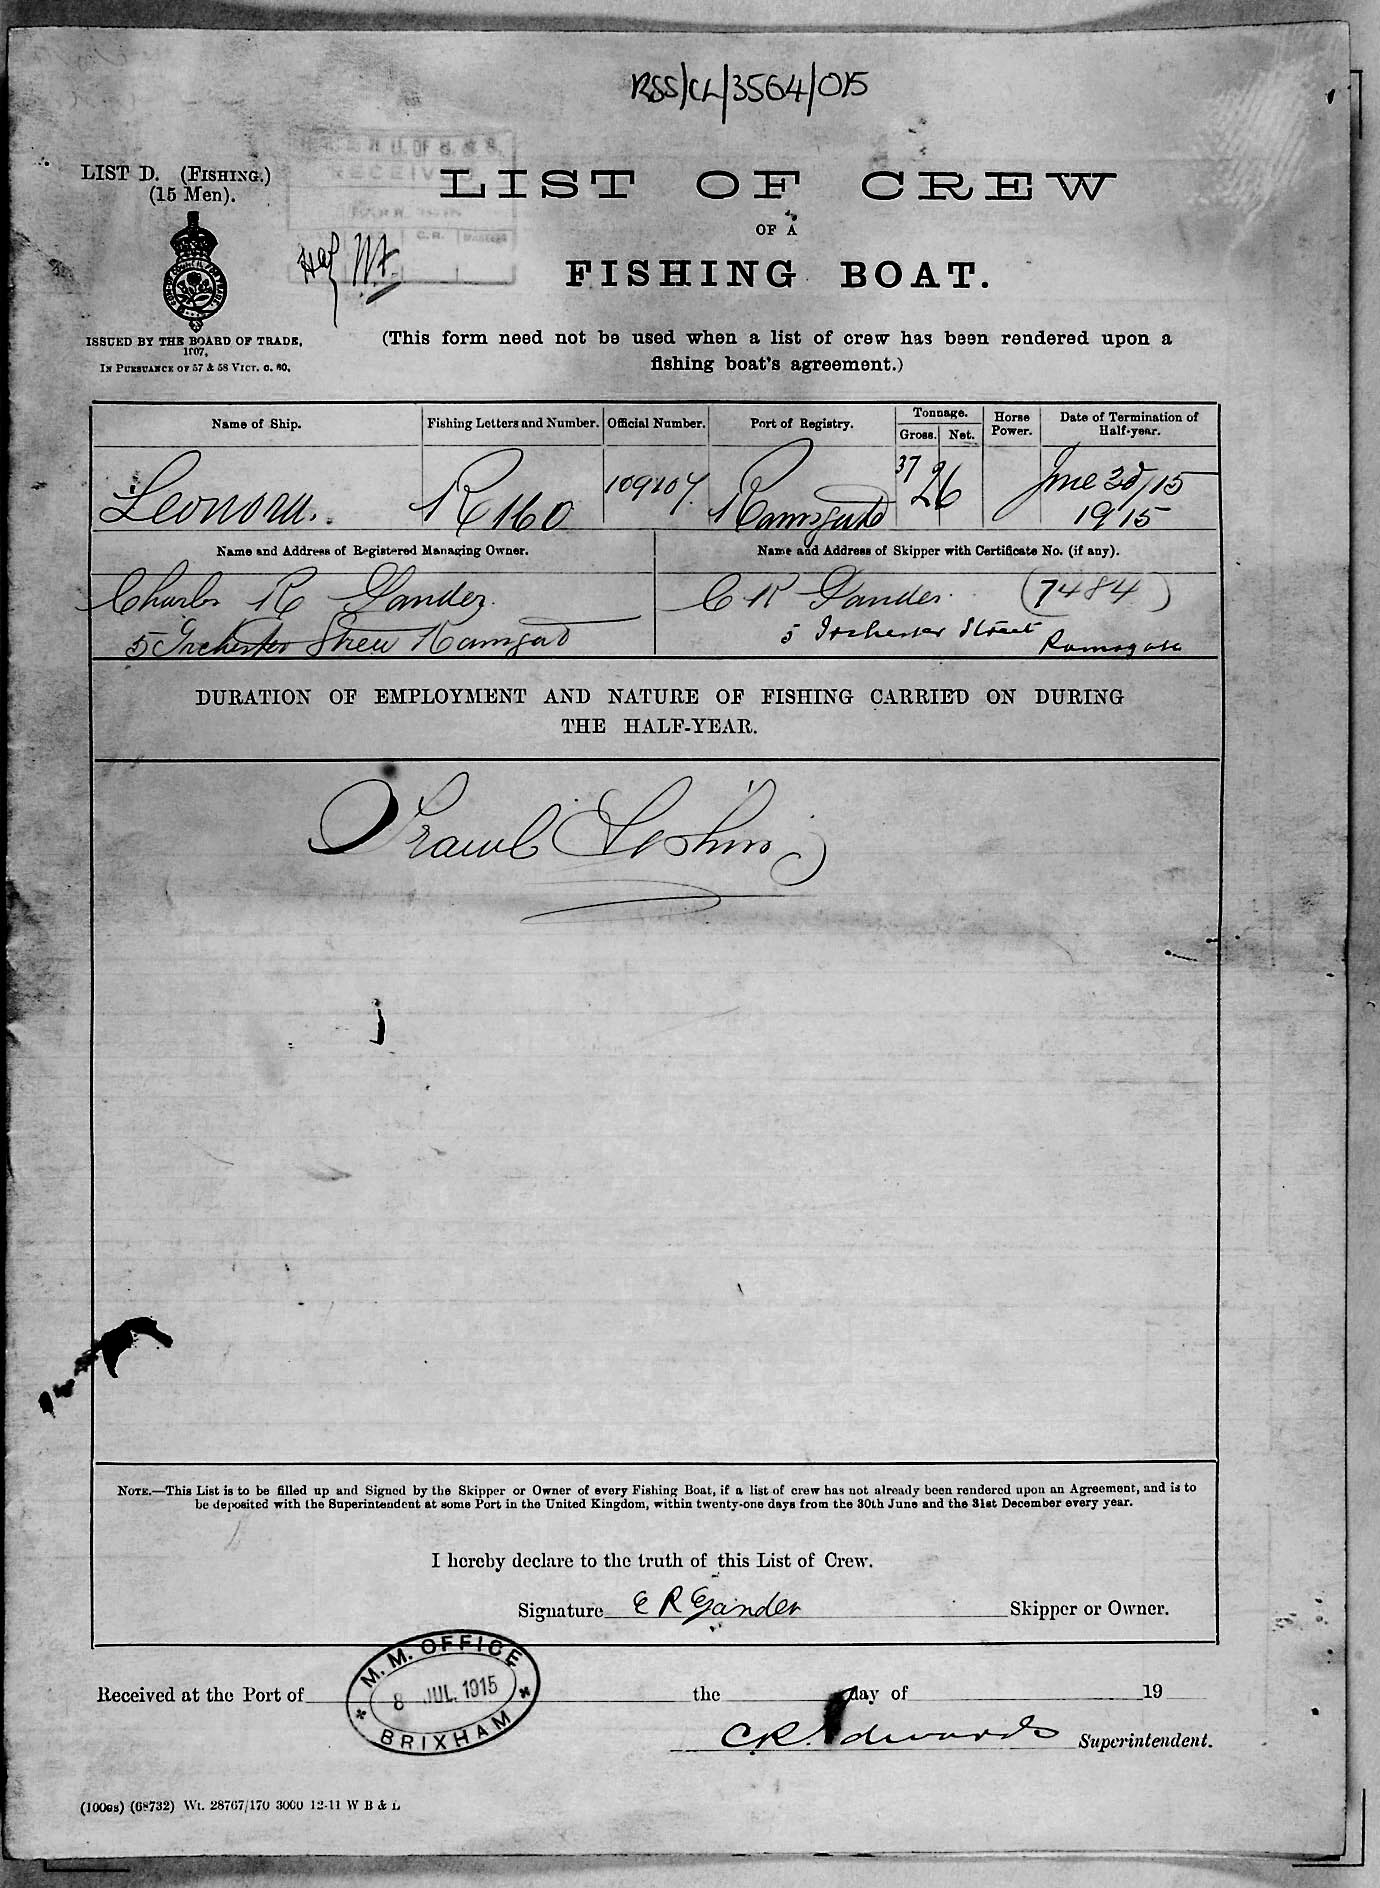 RSS/CL/3564/015
LIST D. (FISHING.)
(15 Men).
RECEIVED
LIST OF CREW
OF A
FISHING BOAT.
ISSUED BY THE BOARD OF TRADE,
1907,
IN PURSUANCE OF 57 & 58 VICT. C. 60.
(This form need not be used when a list of crew has been rendered upon a
fishing boat's agreement.)
Name of Ship. Fishing Letters and Number. Official Number. Port of Registry. Tonnage. Gross. Net. Horse Power. Date of Termination of Half-year.
Leonora. R 160 109207. Ramsgate 37 26 June 30/15
1915
Name and Address of Registered Managing Owner. Name and Address of Skipper with Certificate No. (if any).
Charles R Gander. C R Gander. (7484)
5 Street Ramsgate 5 Street Ramsgate
DURATION OF EMPLOYMENT AND NATURE OF FISHING CARRIED ON DURING
THE HALF-YEAR.
Trawl Fishing
NOTE.—This List is to be filled up and Signed by the Skipper or Owner of every Fishing Boat, if a list of crew has not already been rendered upon an Agreement, and is to
be deposited with the Superintendent at some Port in the United Kingdom, within twenty-one days from the 30th June and the 31st December every year.
I hereby declare to the truth of this List of Crew.
Signature C R Gander Skipper or Owner.
M. M. OFFICE
8 JUL. 1915
BRIXHAM
Received at the Port of the day of 19
C R Edwards Superintendent.
(100gs) (68732) Wt. 28767/170 3000 12-11 W B & L